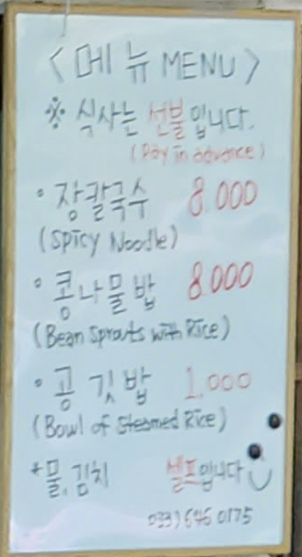 <메뉴 MENU>
※ 식사는 선불입니다.
(Pay in advance)
• 장칼국수 8.000
(Spicy Noodle)
• 콩나물밥 8.000
(Bean Sprouts with Rice)
• 공깃밥 1.000
(Bowl of Steamed Rice)
*물, 김치 셀프입니다
033) 646 0175